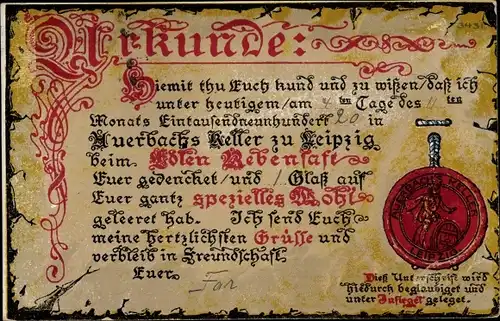 Urkunde:
3431
Hiemit thu Euch kund und zu wißen/daß ich
unter heutigem/am 4ten Tage des 11ten
Monats Eintausendneunhundert 20 in
Auerbachs Keller zu Leipzig
beim Edlen Rebensaft
Euer gedencket/und 1 Glaß auf
Euer gantz spezielles Wohl
geleeret hab. Ich send Euch
meine hertzlichsten Grüsse und
verbleib in Freundschaft
Euer
AUERBACHS KELLER
LEIPZIG
Dieß Unterschrift wird
hiedurch beglaubiget und
unter Insiegel geleget.